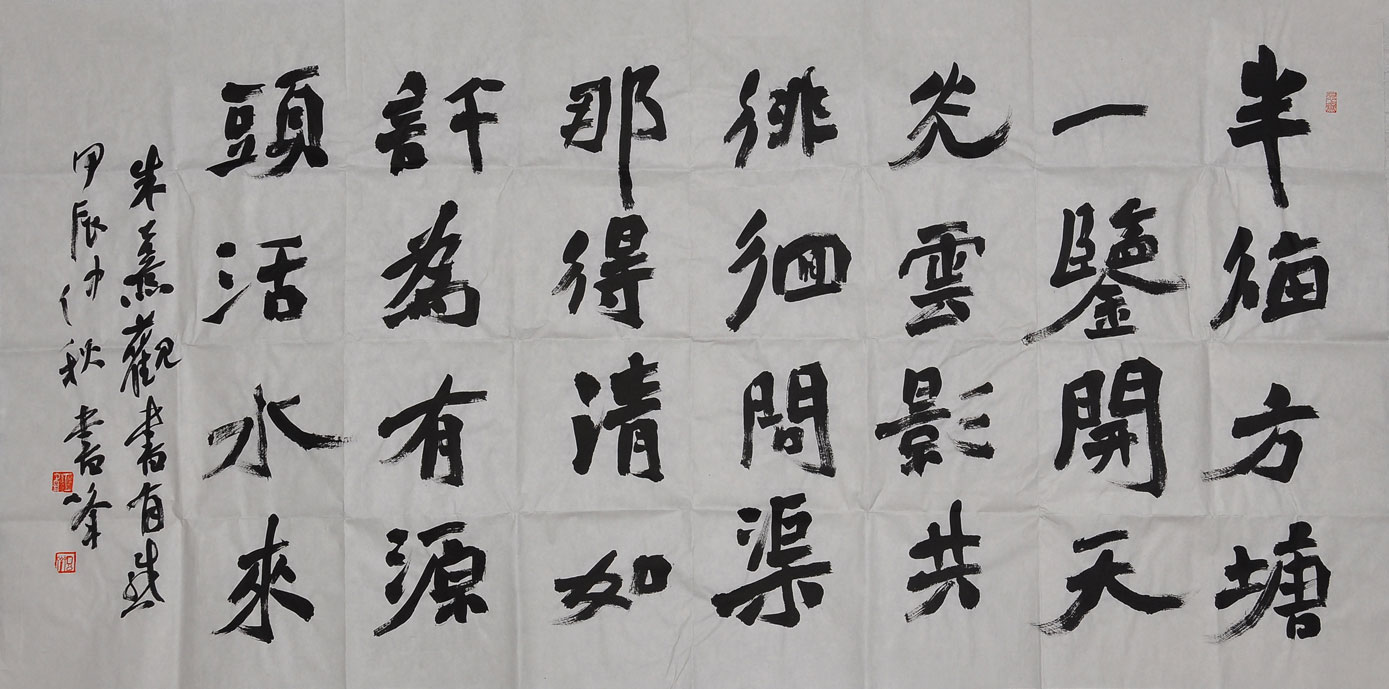 半畝方塘
一鑒開天
光雲影共
徘徊問渠
那得清如
許為有源
頭活水來
朱熹觀書有感
甲辰仲秋書峰